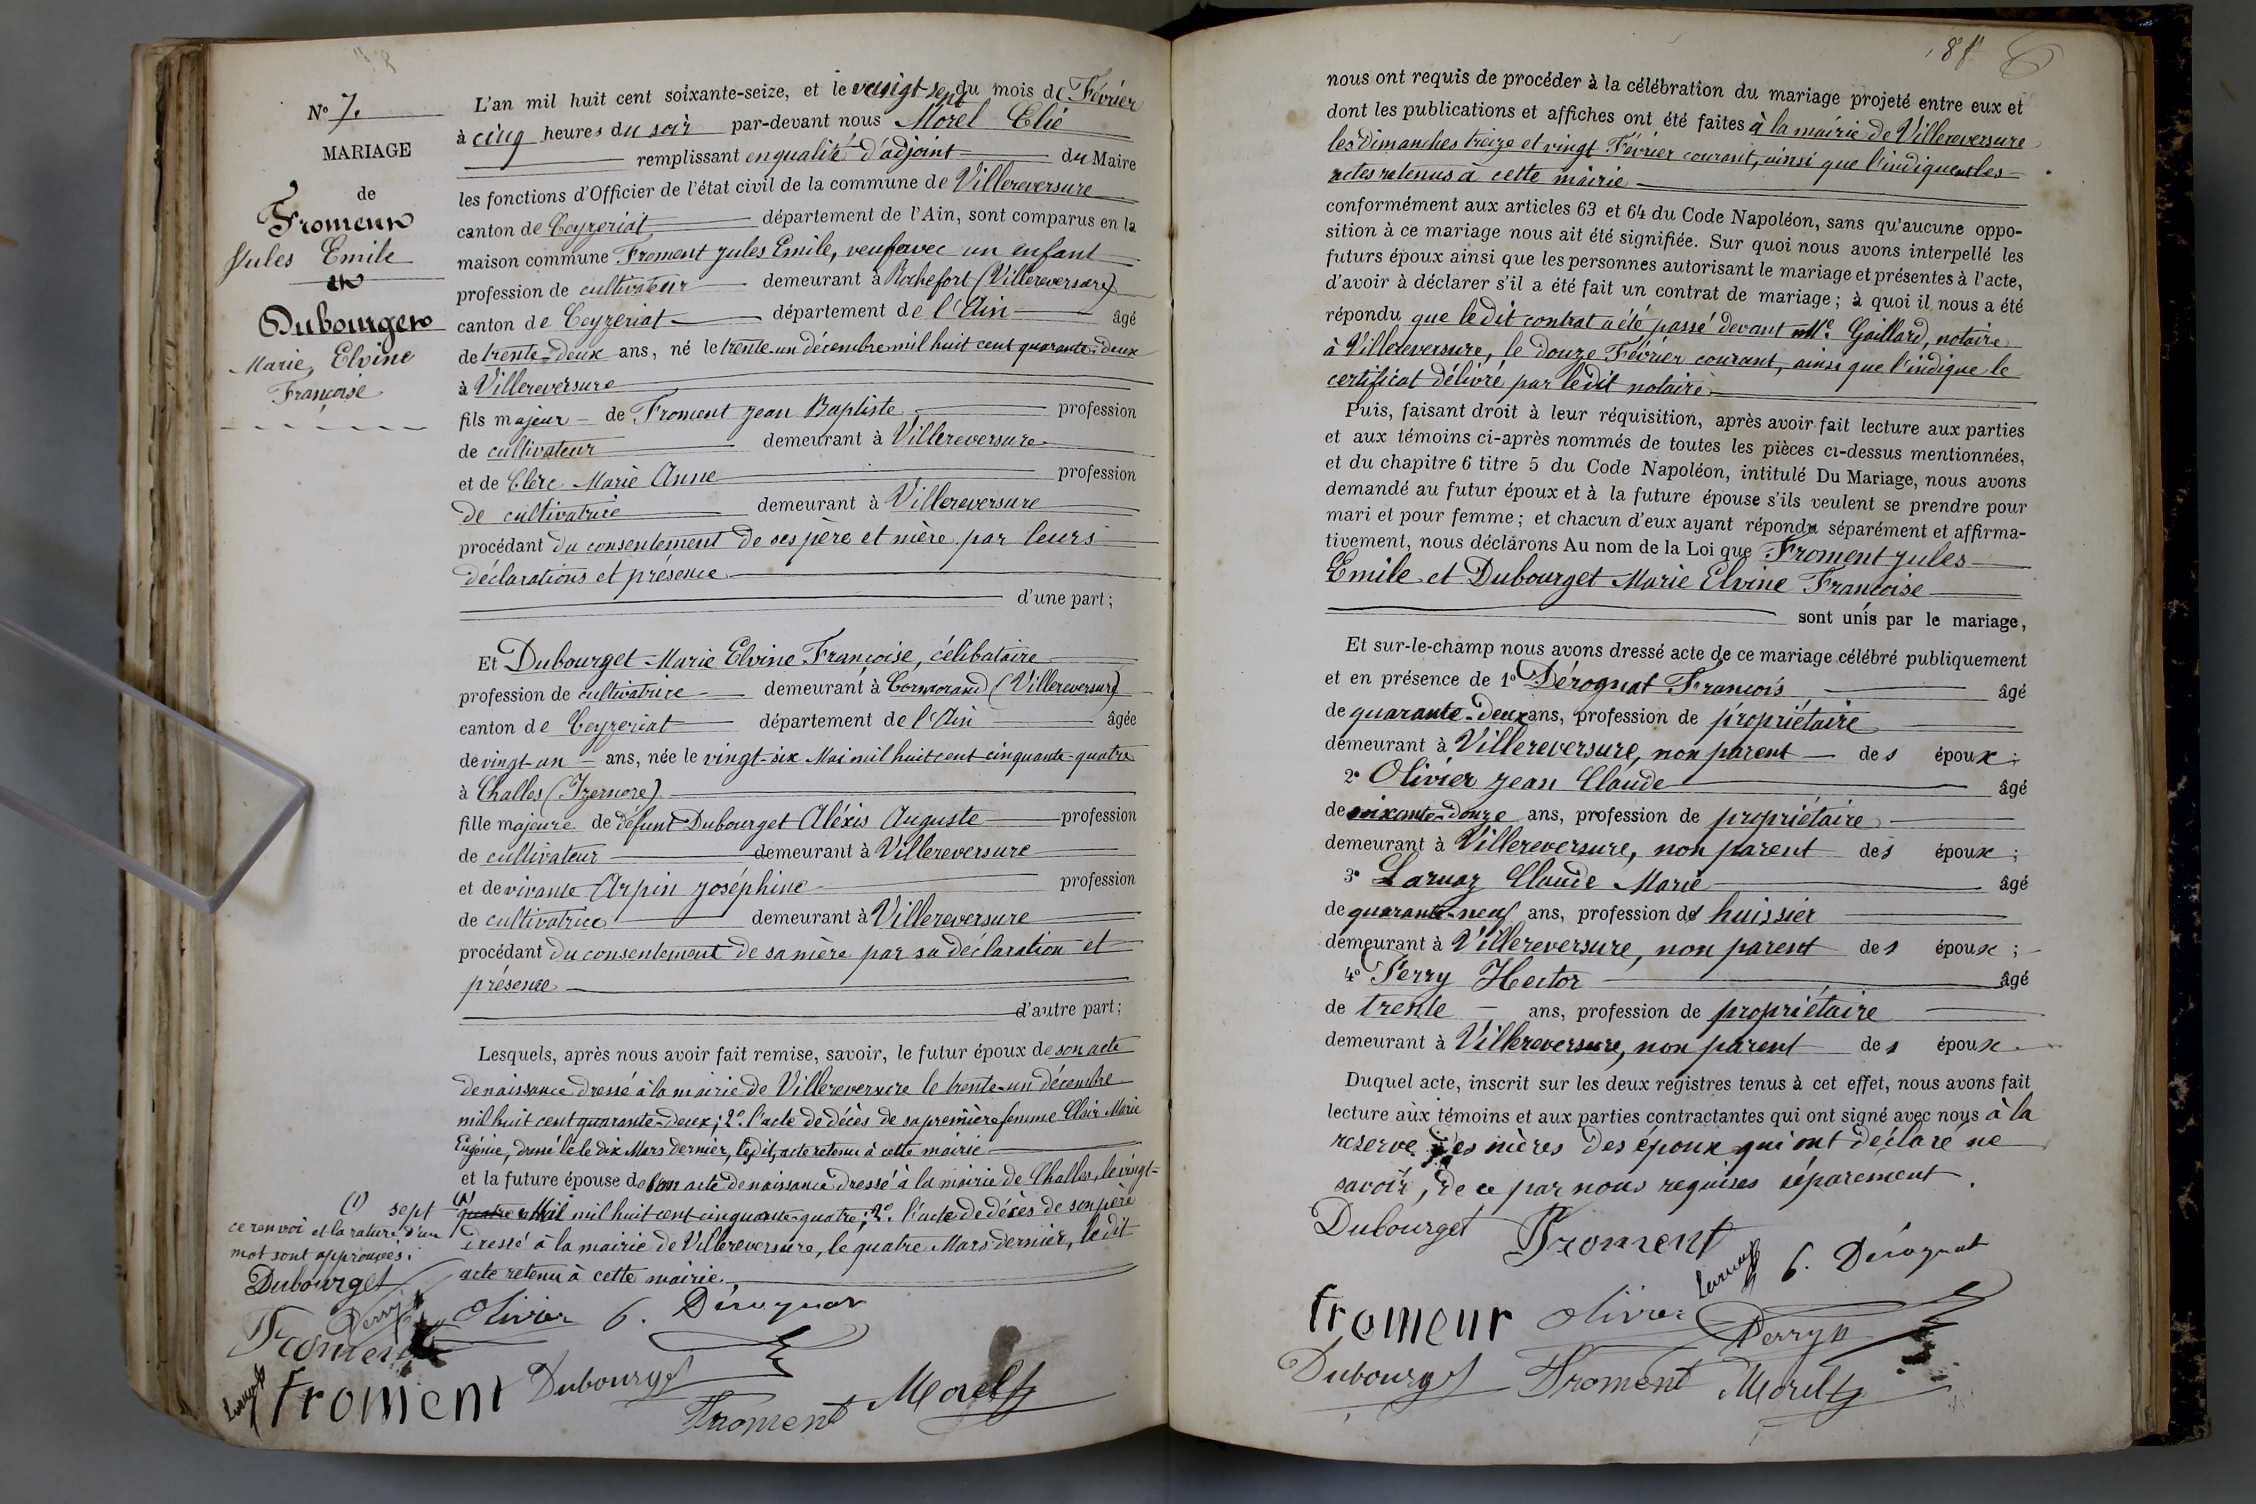 N° 7.
MARIAGE
de
Froment
Jules Emile
et
Dubourget
Marie, Elvine
Françoise
L'an mil huit cent soixante-seize, et le vingt sept du mois de Février
à cinq heures du soir par-devant nous Morel Elie
remplissant en qualité d'adjoint du Maire
les fonctions d'Officier de l'état civil de la commune de Villereversure
canton de Ceyzeriat département de l'Ain, sont comparus en la
maison commune Froment Jules Emile, veuf avec un enfant
profession de cultivateur demeurant à Rochefort (Villereversure)
canton de Ceyzeriat département de l'Ain âgé
de trente-deux ans, né le trente-un décembre mil huit cent quarante-deux
à Villereversure
fils majeur de Froment Jean Baptiste profession
de cultivateur demeurant à Villereversure
et de Clerc Marie Anne profession
de cultivatrice demeurant à Villereversure
procédant du consentement de ses père et mère par leurs
déclarations et présence
d'une part;
Et Dubourget Marie Elvine Françoise, célibataire
profession de cultivatrice demeurant à Cormorand (Villereversure)
canton de Ceyzeriat département de l'Ain âgée
de vingt-un ans, née le vingt-six Mai mil huit cent cinquante-quatre
à Challes (Izernore)
fille majeure de défunt Dubourget Aléxis Auguste profession
de cultivateur demeurant à Villereversure
et de vivante Arpin Joséphine profession
de cultivatrice demeurant à Villereversure
procédant du consentement de sa mère par sa déclaration et
présence
d'autre part;
Lesquels, après nous avoir fait remise, savoir, le futur époux de son acte
de naissance dressé à la mairie de Villereversure le trente-un décembre
mil huit cent quarante-deux; 2°. l'acte de décès de sa première femme Clair Marie
Eugénie, dressé le dix Mars dernier, ledit acte retenu à cette mairie
et la future épouse de son acte de naissance dressé à la mairie de Challes, le vingt-
(1) quatre Mai mil huit cent cinquante-quatre; 2°. l'acte de décès de son père
dressé à la mairie de Villereversure, le quatre Mars dernier, ledit
acte retenu à cette mairie
(1) sept
ce renvoi et la rature d'un
mot sont approuvés.
Dubourget
Perry
Froment
Olivier
Dérognat
Froment
Dubourget
Froment
Morel
nous ont requis de procéder à la célébration du mariage projeté entre eux et
dont les publications et affiches ont été faites à la mairie de Villereversure
les dimanches treize et vingt Février courant, ainsi que l'indiquent les
actes retenus à cette mairie
conformément aux articles 63 et 64 du Code Napoléon, sans qu'aucune oppo-
sition à ce mariage nous ait été signifiée. Sur quoi nous avons interpellé les
futurs époux ainsi que les personnes autorisant le mariage et présentes à l'acte,
d'avoir à déclarer s'il a été fait un contrat de mariage; à quoi il nous a été
répondu que ledit contrat a été passé devant Me. Gaillard, notaire
à Villereversure, le douze Février courant, ainsi que l'indique le
certificat délivré par ledit notaire
Puis, faisant droit à leur réquisition, après avoir fait lecture aux parties
et aux témoins ci-après nommés de toutes les pièces ci-dessus mentionnées,
et du chapitre 6 titre 5 du Code Napoléon, intitulé Du Mariage, nous avons
demandé au futur époux et à la future épouse s'ils veulent se prendre pour
mari et pour femme; et chacun d'eux ayant répondu séparément et affirma-
tivement, nous déclarons Au nom de la Loi que Froment Jules
Emile et Dubourget Marie Elvine Françoise
sont unis par le mariage,
Et sur-le-champ nous avons dressé acte de ce mariage célébré publiquement
et en présence de 1° Dérognat François âgé
de quarante-deux ans, profession de propriétaire
demeurant à Villereversure, non parent des époux;
2° Olivier Jean Claude âgé
de soixante-douze ans, profession de propriétaire
demeurant à Villereversure, non parent des époux;
3° Larnaz Claude Marie âgé
de quarante-neuf ans, profession de huissier
demeurant à Villereversure, non parent des époux;
4° Perry Hector âgé
de trente ans, profession de propriétaire
demeurant à Villereversure, non parent des époux
Duquel acte, inscrit sur les deux registres tenus à cet effet, nous avons fait
lecture aux témoins et aux parties contractantes qui ont signé avec nous à la
reserve des mères des époux qui ont déclaré ne
savoir, de ce par nous requises séparement.
Dubourget Froment
Larnaz
Dérognat
Froment Olivier Perry
Dubourget Froment Morel